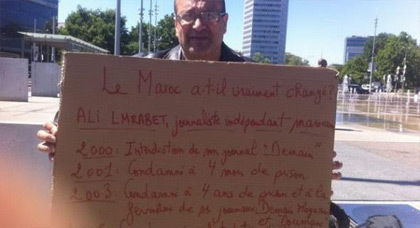 Le Maroc a-t-il vraiment changé?
ALI LMRABET, journaliste indépendant marocain
2000: Interdiction de mon journal "Demain"
2001: Condamné à 4 mois de prison
2003: Condamné à 4 ans de prison et à la
fermeture de Demain Magazine
et Doumane